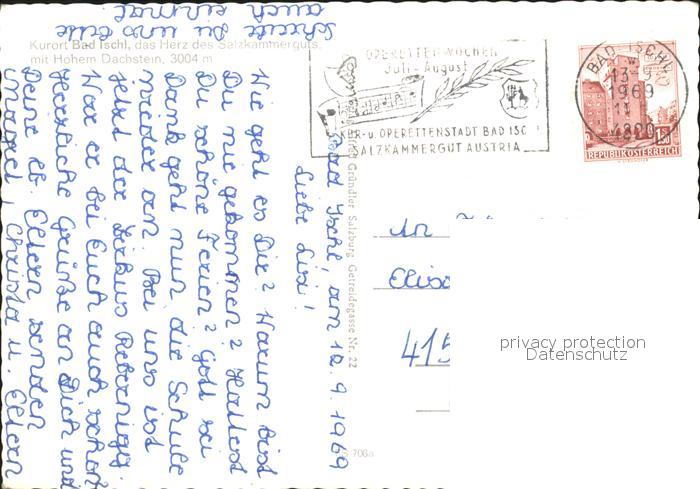 Kurort Bad Ischl, das Herz des Salzkammerguts,
mit Hohem Dachstein, 3004 m
OPERETTENWOCHEN
Juli-August
KUR- u. OPERETTENSTADT BAD ISCHL
SALZKAMMERGUT AUSTRIA
BAD ISCHL
13.-9.
1969
11
4820
1.50
REPUBLIK ÖSTERREICH
Gründler Salzburg Getreidegasse Nr. 22
706a
Bad Ischl, am 12. 9. 1969
Liebe Lisi!
Wie geht es Dir? Warum bist
Du nie gekommen? Hattest
Du schöne Ferien? Gott sei
Dank geht nun die Schule
wieder an. Bei uns ist
jetzt der Zirkus Rebernigg.
War er bei Euch auch schon?
Herzliche Grüße an Dich und
Deine lb. Eltern senden
Christa u. Eltern
Schreibe Du uns bitte
auch einmal.
An
415
privacy protection
Datenschutz